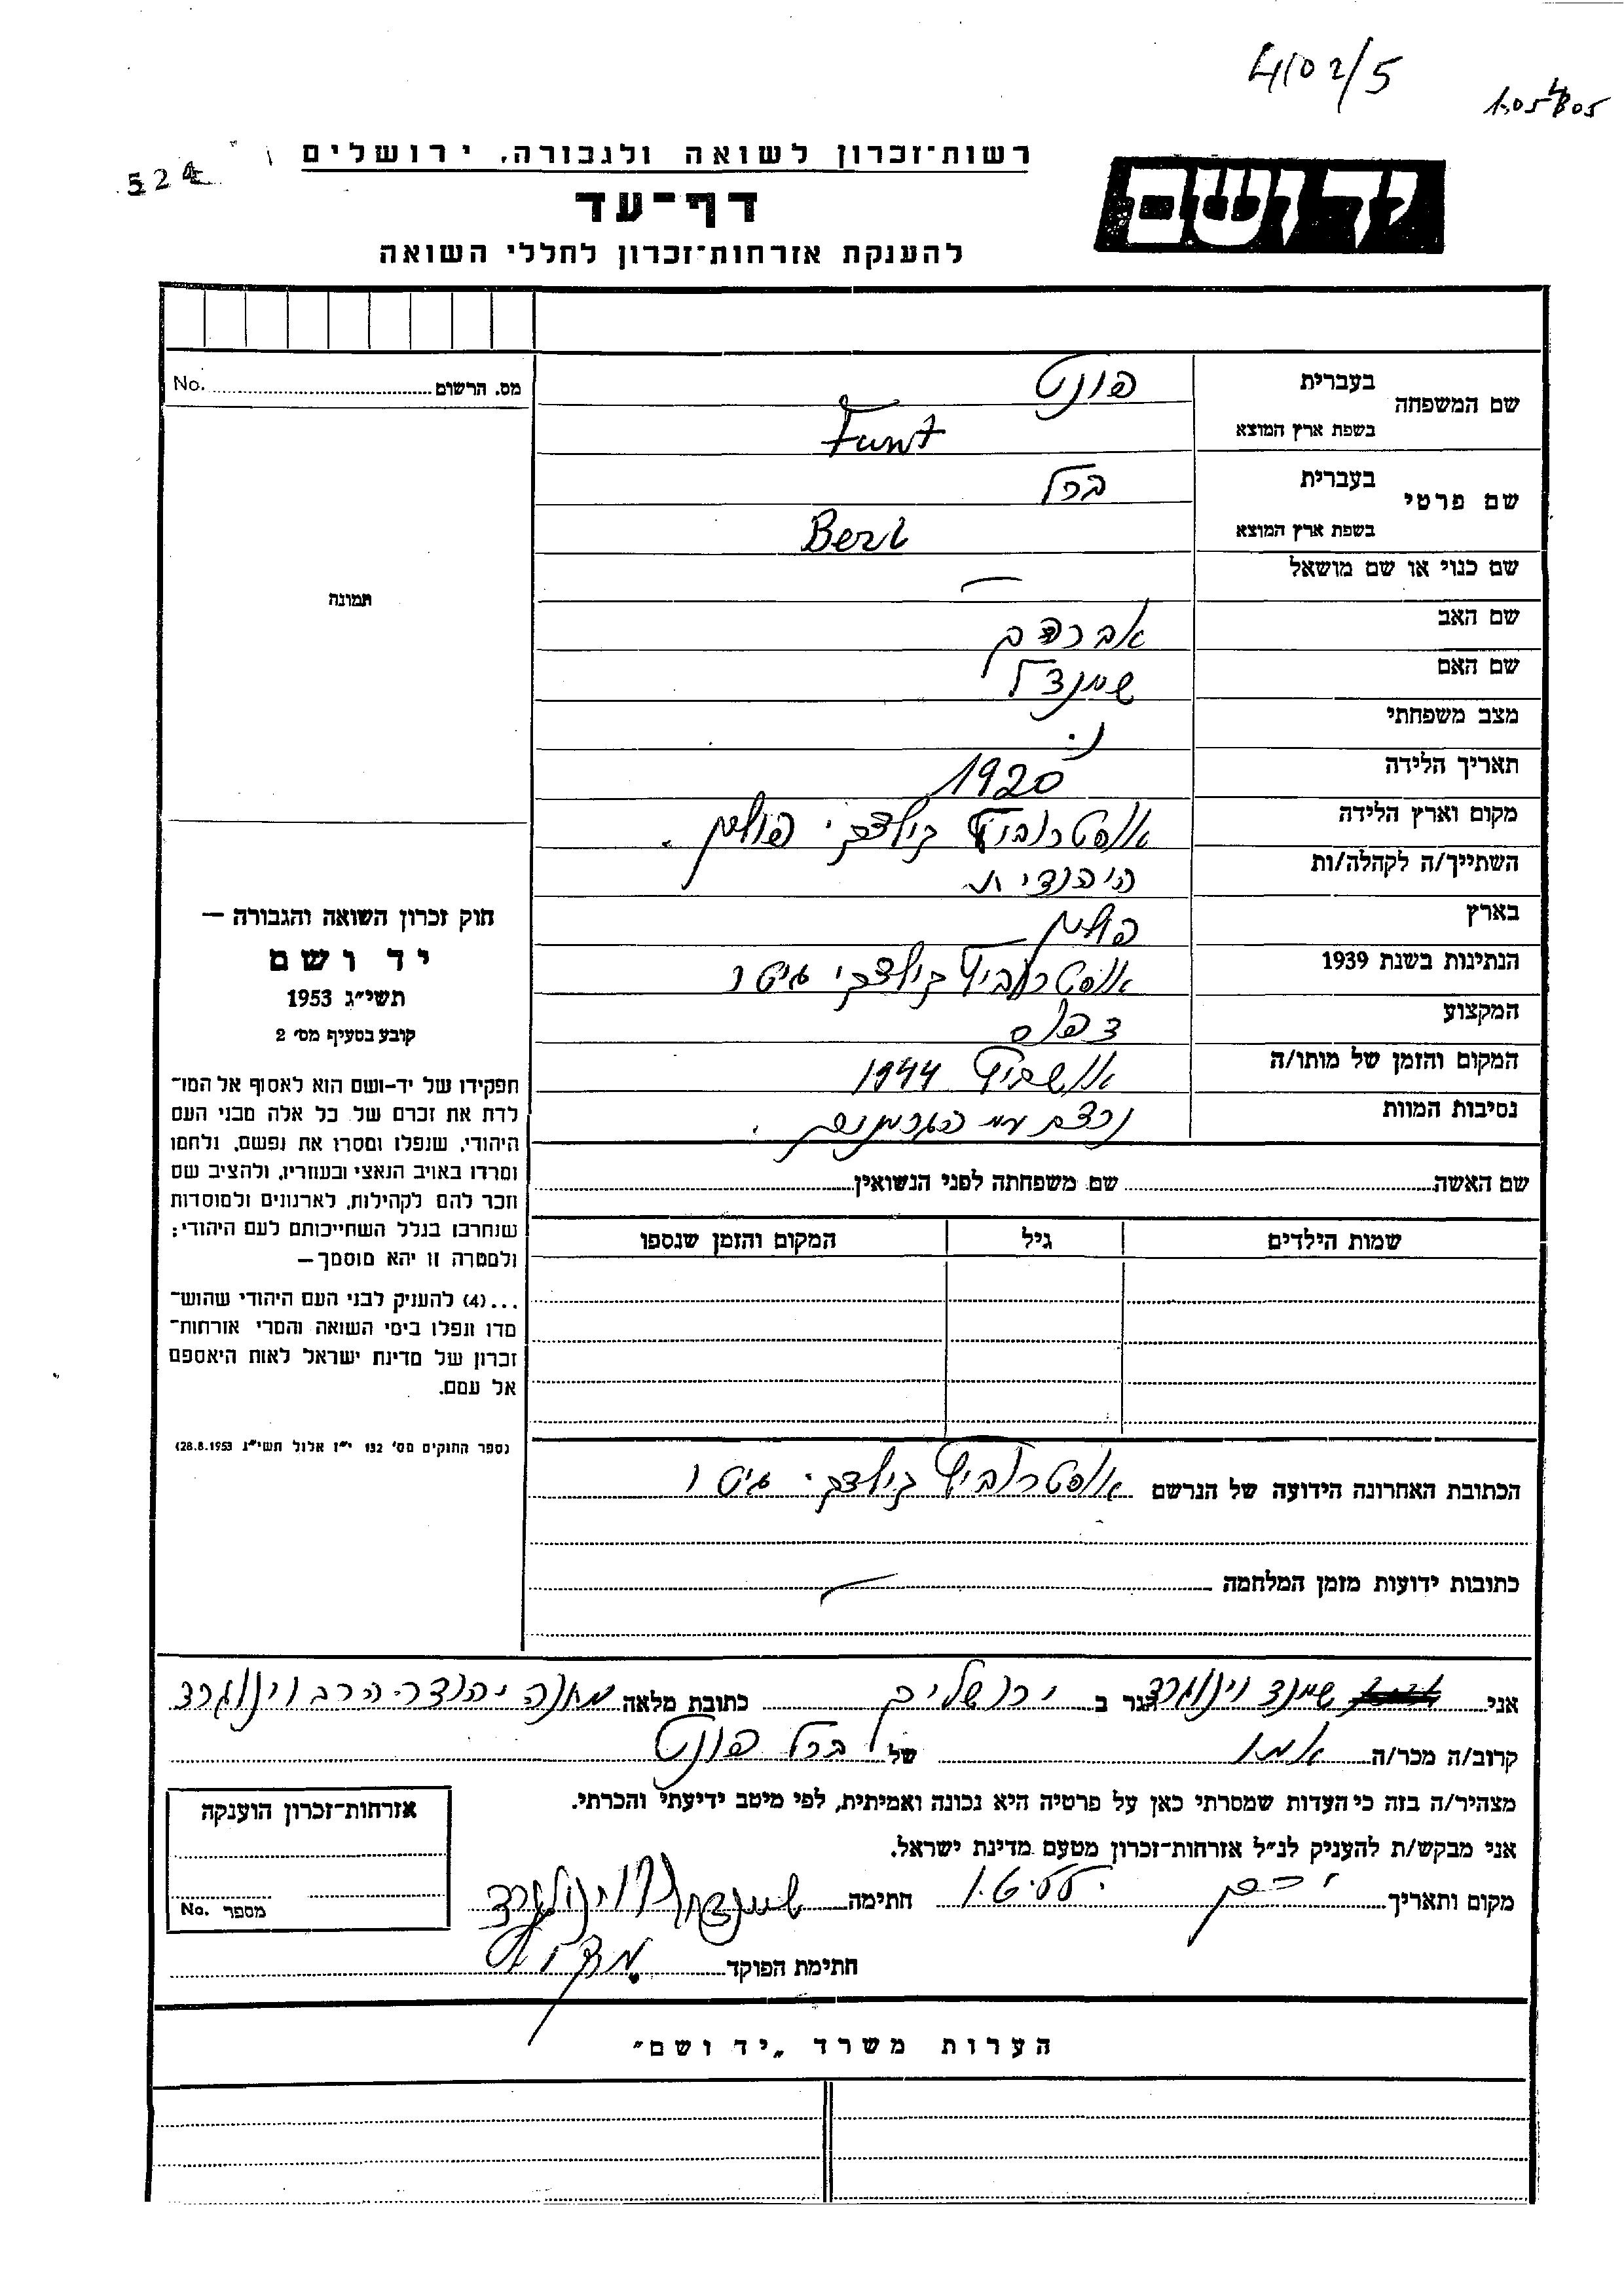 4102/5
524
רשות־זכרון לשואה ולגבורה, ירושלים
יד ושם
דף־עד
להענקת אזרחות־זכרון לחללי השואה
מס. הרשום No.
תמונה
שם המשפחה
בעברית פונט
בשפת ארץ המוצא Funt
שם פרטי
בעברית ברל
בשפת ארץ המוצא Berl
שם כנוי או שם מושאל —
שם האב אברהם
שם האם שיינדל
מצב משפחתי
תאריך הלידה 1920
מקום וארץ הלידה פולין.
השתייך/ה לקהלה/ות היהודית
בארץ פולין
הנתינות בשנת 1939 גיטו
המקצוע
המקום והזמן של מותו/ה אושביץ 1944
נסיבות המוות נרצח
שם האשה שם משפחתה לפני הנשואין
שמות הילדים גיל המקום והזמן שנספו
הכתובת האחרונה הידועה של הנרשם גיטו
כתובות ידועות מזמן המלחמה —
חוק זכרון השואה והגבורה —
יד ושם
תשי״ג 1953
קובע בסעיף מס׳ 2
תפקידו של יד-ושם הוא לאסוף אל המו־
לדת את זכרם של כל אלה מבני העם
היהודי, שנפלו ומסרו את נפשם, נלחמו
ומרדו באויב הנאצי ובעוזריו, ולהציב שם
וזכר להם לקהילות, לארגונים ולמוסדות
שנחרבו בגלל השתייכותם לעם היהודי;
ולמטרה זו יהא מוסמך—
...(4) להעניק לבני העם היהודי שהוש־
מדו ונפלו בימי השואה והמרי אזרחות־
זכרון של מדינת ישראל לאות היאספם
אל עמם.
(ספר החוקים מס׳ 132 י״ז אלול תשי״ג 28.8.1953)
אני שיינדל וינוגרד הגר ב ירושלים כתובת מלאה מחנה יהודה הרב וינוגרד
קרוב/ה מכר/ה אמו של ברל פונט
מצהיר/ה בזה כי העדות שמסרתי כאן על פרטיה היא נכונה ואמיתית, לפי מיטב ידיעתי והכרתי.
אני מבקש/ת להעניק לנ״ל אזרחות־זכרון מטעם מדינת ישראל.
מקום ותאריך חתימה
חתימת הפוקד
אזרחות־זכרון הוענקה
מספר No.
הערות משרד „יד ושם״